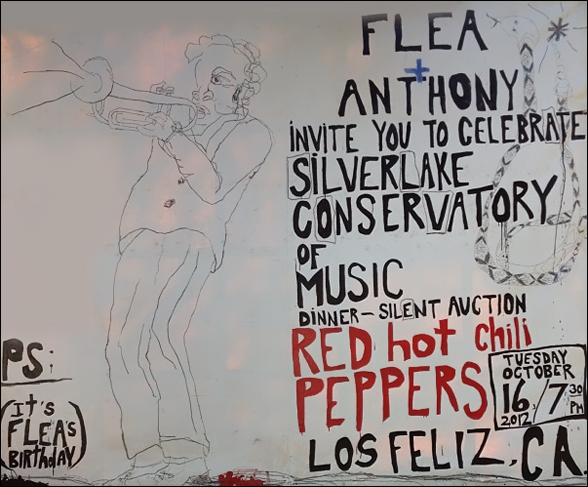 FLEA
+
ANTHONY
INVITE YOU TO CELEBRATE
SILVERLAKE
CONSERVATORY
OF
MUSIC
DINNER - SILENT AUCTION
RED hot chili
PEPPERS
TUESDAY
OCTOBER
16, / 7 30 PM
2012
LOS FELIZ, CA
PS:
(It's
FLEA'S
BIRthDAY)